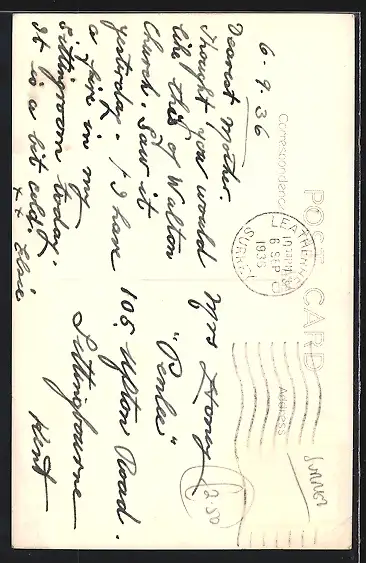 POST CARD
Correspondence
Address
LEATHERHEAD
6 SEP
1936
SURREY
6.9.36
Dearest Mother.
Thought you would
like this of Walton
Church. Saw it
yesterday. I have
a fire in my
sittingroom today.
It is a bit cold.
x x Elsie
Mrs Honey
"Penlee"
105 Upton Road.
Sittingbourne
Kent
SURREY